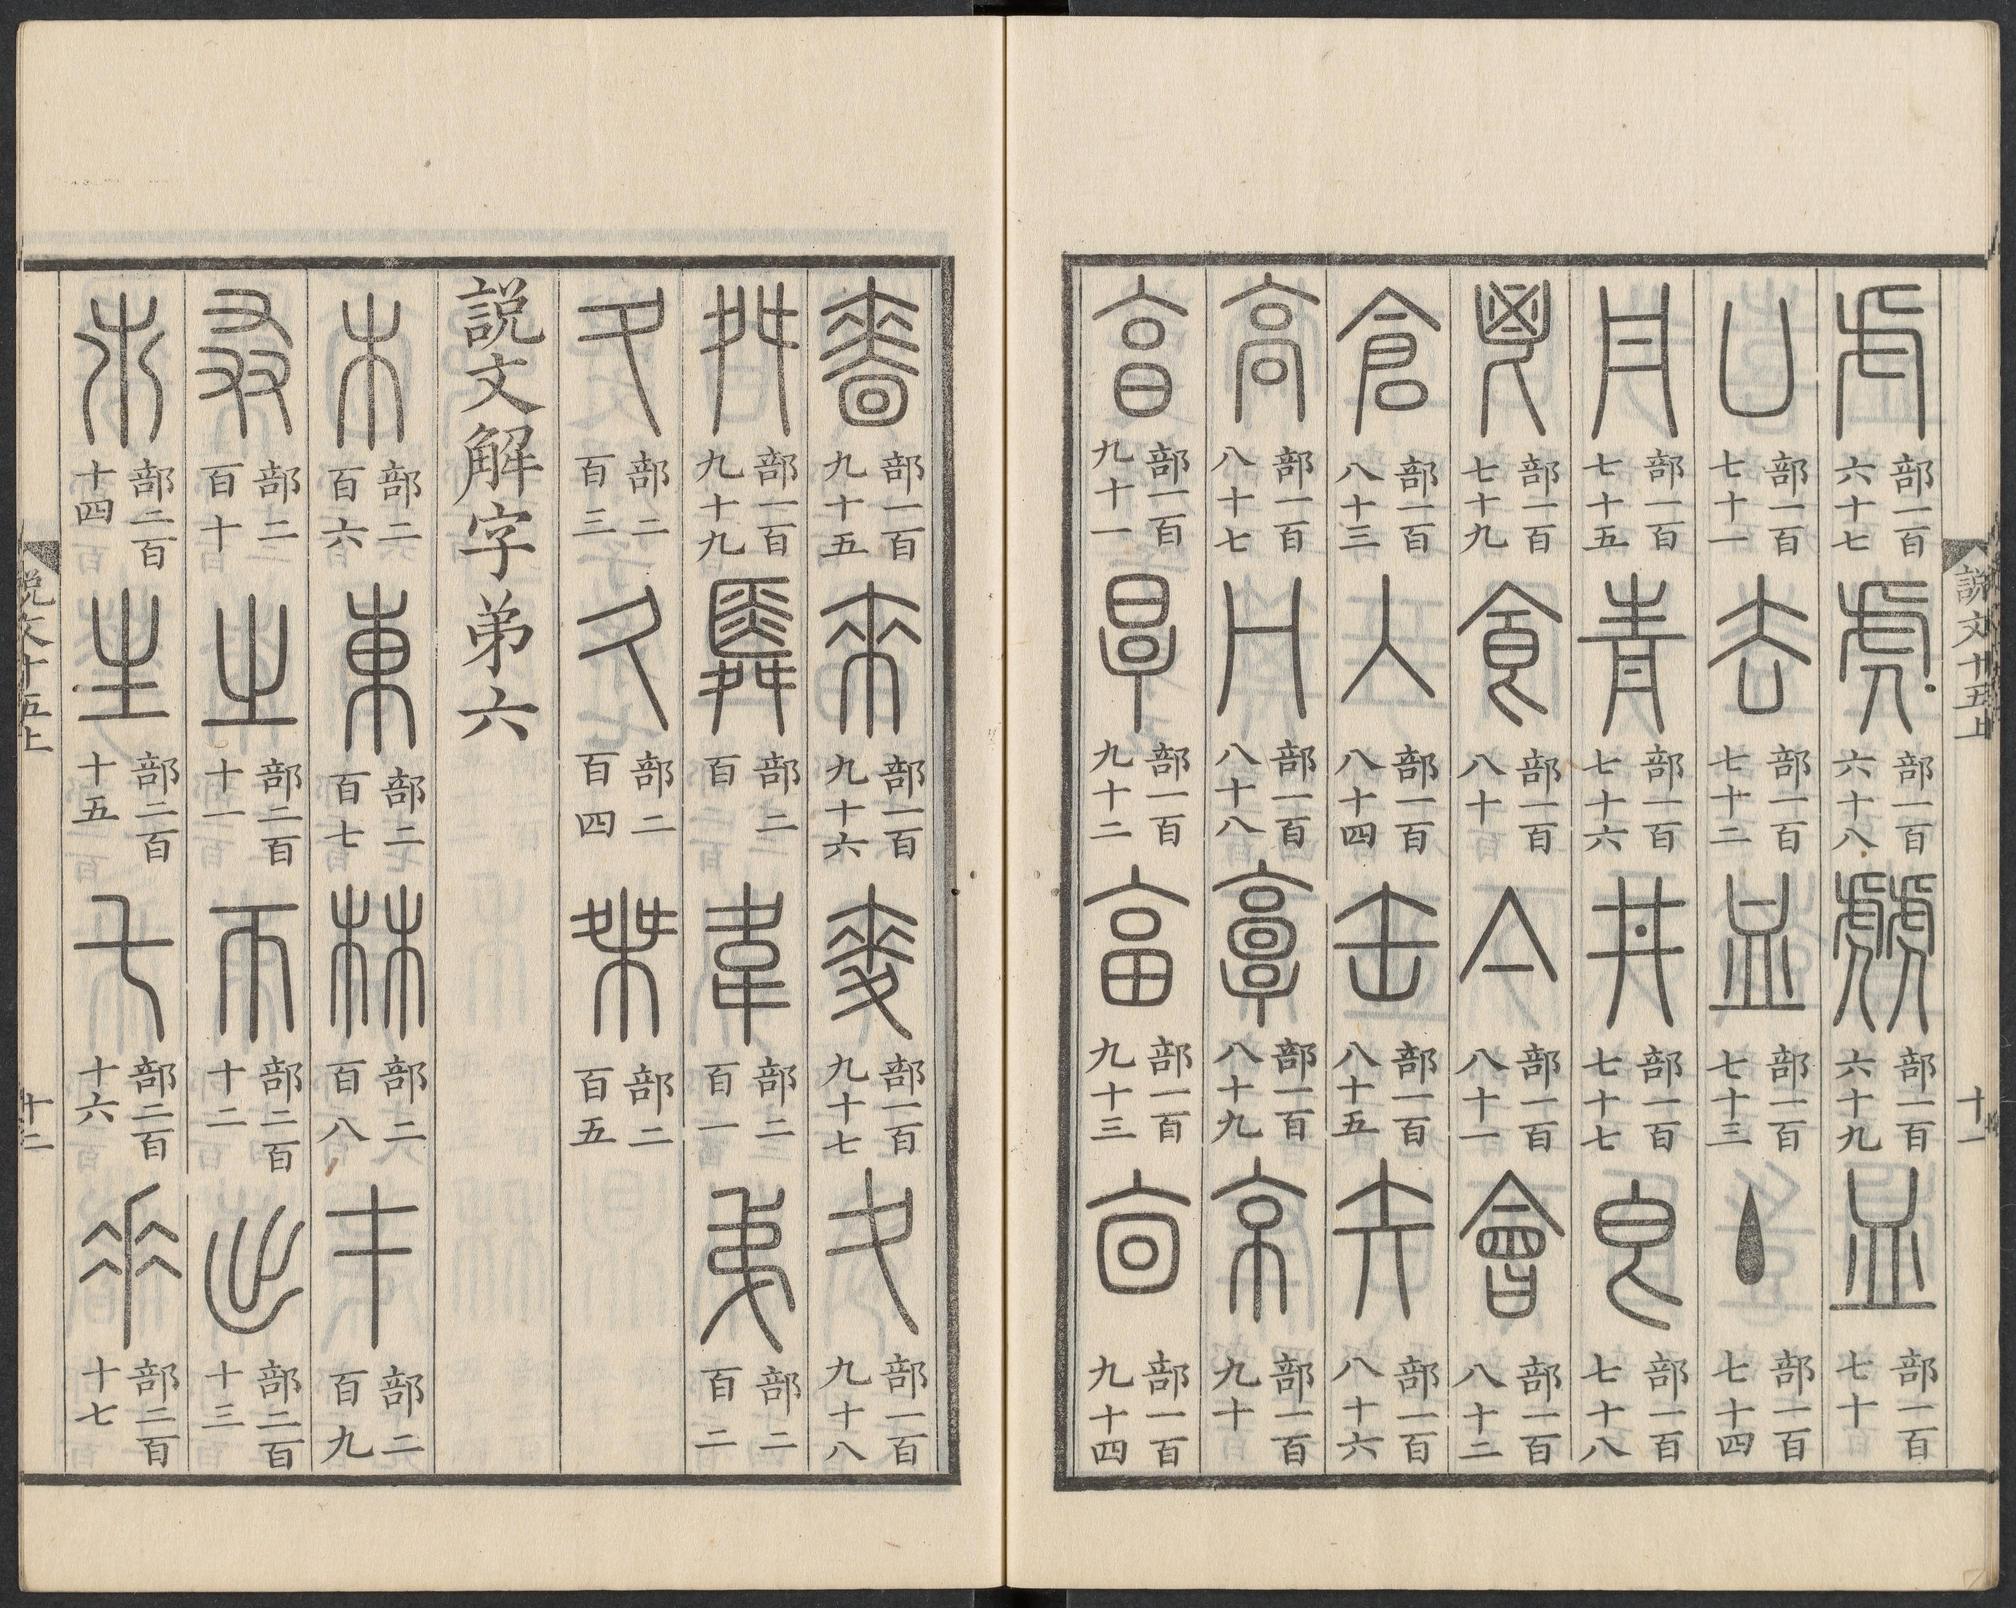 說文十五上 十一
虍部一百六十七虎部一百六十八虤部一百六十九皿部一百七十
凵部一百七十一去部一百七十二血部一百七十三丶部一百七十四
丹部一百七十五青部一百七十六井部一百七十七皀部一百七十八
鬯部一百七十九食部一百八十亼部一百八十一會部一百八十二
倉部一百八十三入部一百八十四缶部一百八十五矢部一百八十六
高部一百八十七冂部一百八十八𩫏部一百八十九京部一百九十
亯部一百九十一㫗部一百九十二畗部一百九十三㐭部一百九十四
嗇部一百九十五來部一百九十六麥部一百九十七夊部一百九十八
舛部一百九十九䑞部二百韋部二百一弟部二百二
夂部二百三久部二百四桀部二百五
說文解字弟六
木部二百六東部二百七林部二百八才部二百九
叒部二百十之部二百十一帀部二百十二出部二百十三
𣎵部二百十四生部二百十五乇部二百十六𠂹部二百十七
說文十五上 十二